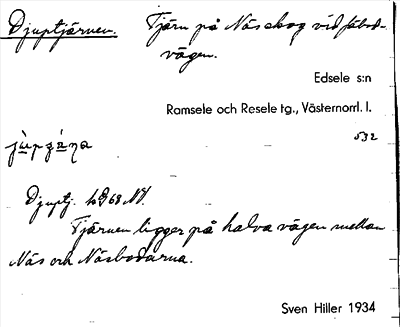 Djuptjärnen. Tjärn på Näs skog vid fäbod-
vägen.
Edsele s:n
Ramsele och Resele tg., Västernorrl. l.
532
Djuptj.
Tjärnen ligger på halva vägen mellan
Näs och Näsbodarna.
Sven Hiller 1934